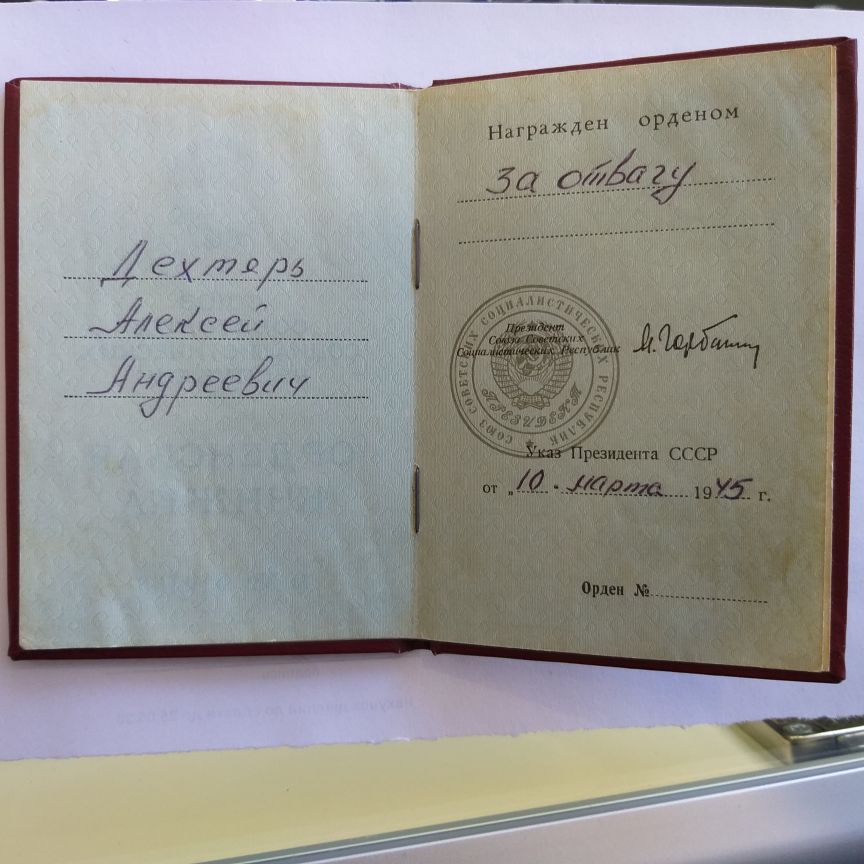 Дехтярь
Алексей
Андреевич
Награжден орденом
За отвагу
СОЮЗ СОВЕТСКИХ СОЦИАЛИСТИЧЕСКИХ РЕСПУБЛИК
ПРЕЗИДЕНТ
Президент
Союза Советских
Социалистических Республик
М. Горбачев
Указ Президента СССР
от „10" марта 1945 г.
Орден №